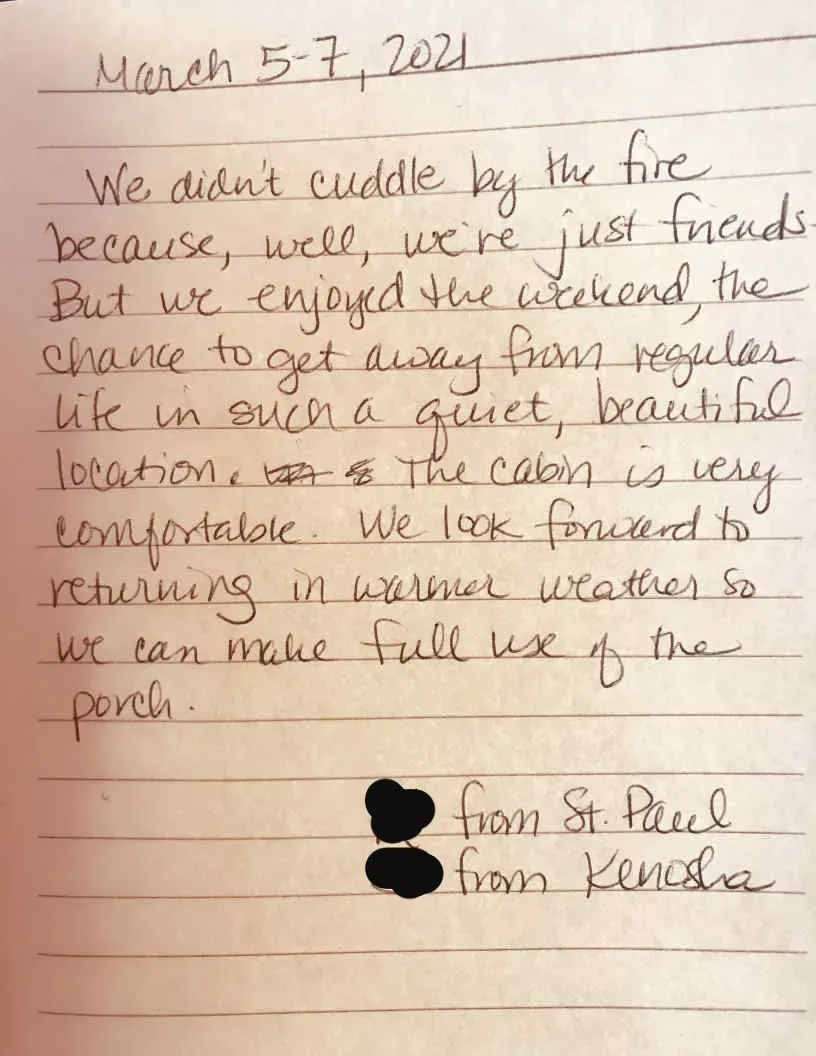 March 5-7, 2021
We didn't cuddle by the fire
because, well, we're just friends.
But we enjoyed the weekend, the
chance to get away from regular
life in such a quiet, beautiful
location. The cabin is very
comfortable. We look forward to
returning in warmer weather so
we can make full use of the
porch.
from St. Paul
from Kenosha